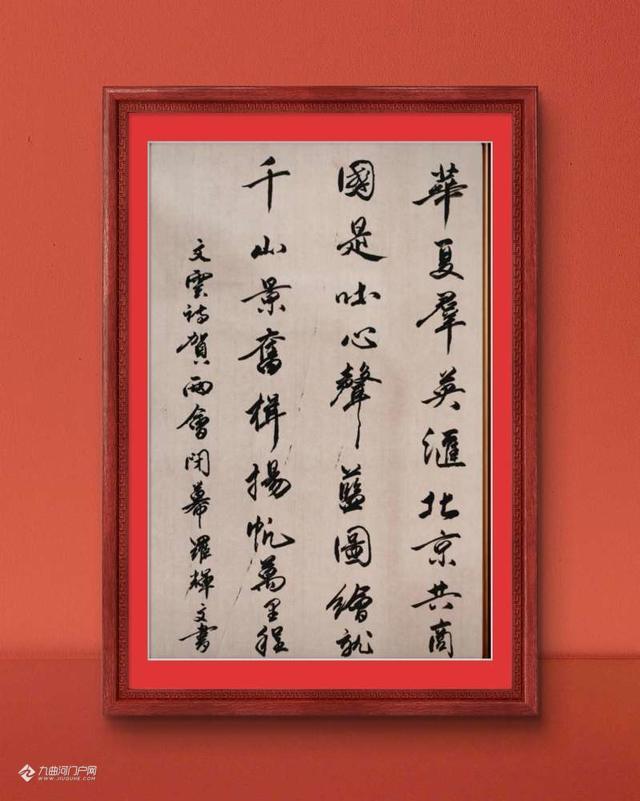 華夏羣英滙北京共商
國是吐心聲藍圖繪就
千山景奮楫揚帆萬里程
文雲詩賀兩會闭幕羅輝文書
九曲河门户网
WWW.JIUQUHE.COM